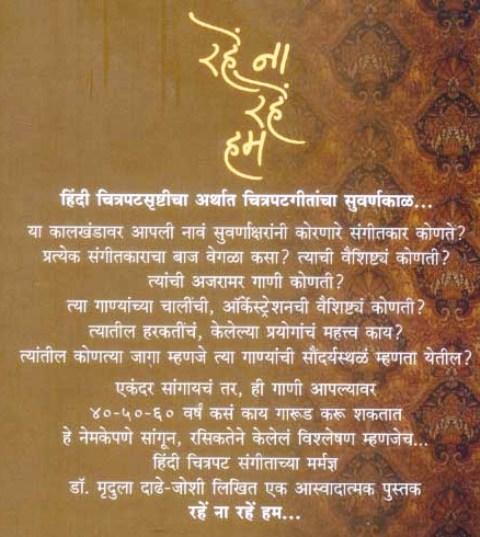 रहें ना
रहें
हम
हिंदी चित्रपटसृष्टीचा अर्थात चित्रपटगीतांचा सुवर्णकाळ...
या कालखंडावर आपली नावं सुवर्णाक्षरांनी कोरणारे संगीतकार कोणते?
प्रत्येक संगीतकाराचा बाज वेगळा कसा? त्याची वैशिष्ट्यं कोणती?
त्यांची अजरामर गाणी कोणती?
त्या गाण्यांच्या चालींची, ऑर्केस्ट्रेशनची वैशिष्ट्यं कोणती?
त्यातील हरकतींचं, केलेल्या प्रयोगांचं महत्त्व काय?
त्यांतील कोणत्या जागा म्हणजे त्या गाण्यांची सौंदर्यस्थळं म्हणता येतील?
एकंदर सांगायचं तर, ही गाणी आपल्यावर
४०-५०-६० वर्षं कसं काय गारूड करू शकतात
हे नेमकेपणे सांगून, रसिकतेने केलेलं विश्लेषण म्हणजेच...
हिंदी चित्रपट संगीताच्या मर्मज्ञ
डॉ. मृदुला दाढे-जोशी लिखित एक आस्वादात्मक पुस्तक
रहें ना रहें हम...